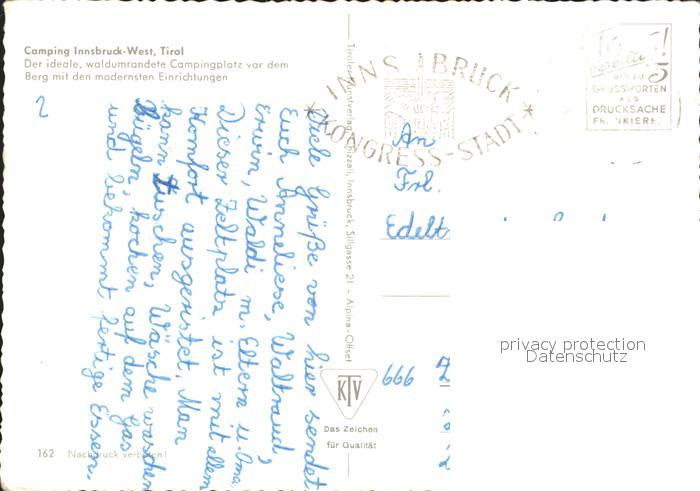 Camping Innsbruck-West, Tirol
Der ideale, waldumrandete Campingplatz vor dem
Berg mit den modernsten Einrichtungen
2
Viele Grüße von hier sendet
Euch Anneliese, Waltraud,
Erwin, Waldi m. Eltern u. Oma
Dieser Zeltplatz ist mit allem
Komfort ausgerüstet. Man
kann Duschen, Wäsche waschen
bügeln, kochen auf dem Gas
und bekommt fertige Essen.
162 Nachdruck verboten!
Tiroler Kunstverlag Chizzali, Innsbruck, Sillgasse 21 - Alpina-Offset
KTV
Das Zeichen
für Qualität
INNSBRUCK
KONGRESS-STADT
5
GRUSSWORTEN
ALS
DRUCKSACHE
FRANKIERE
An
Frl.
Edelt
666
privacy protection
Datenschutz